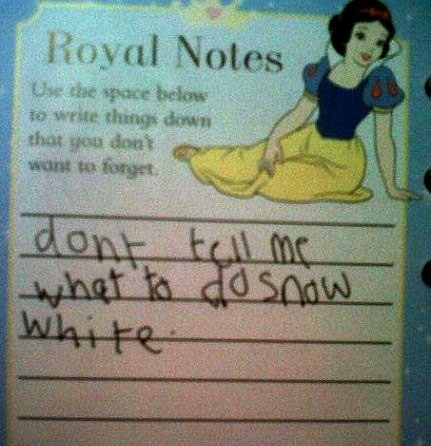 Royal Notes
Use the space below
to write things down
that you don't
want to forget.
dont tell me
what to do snow
white.